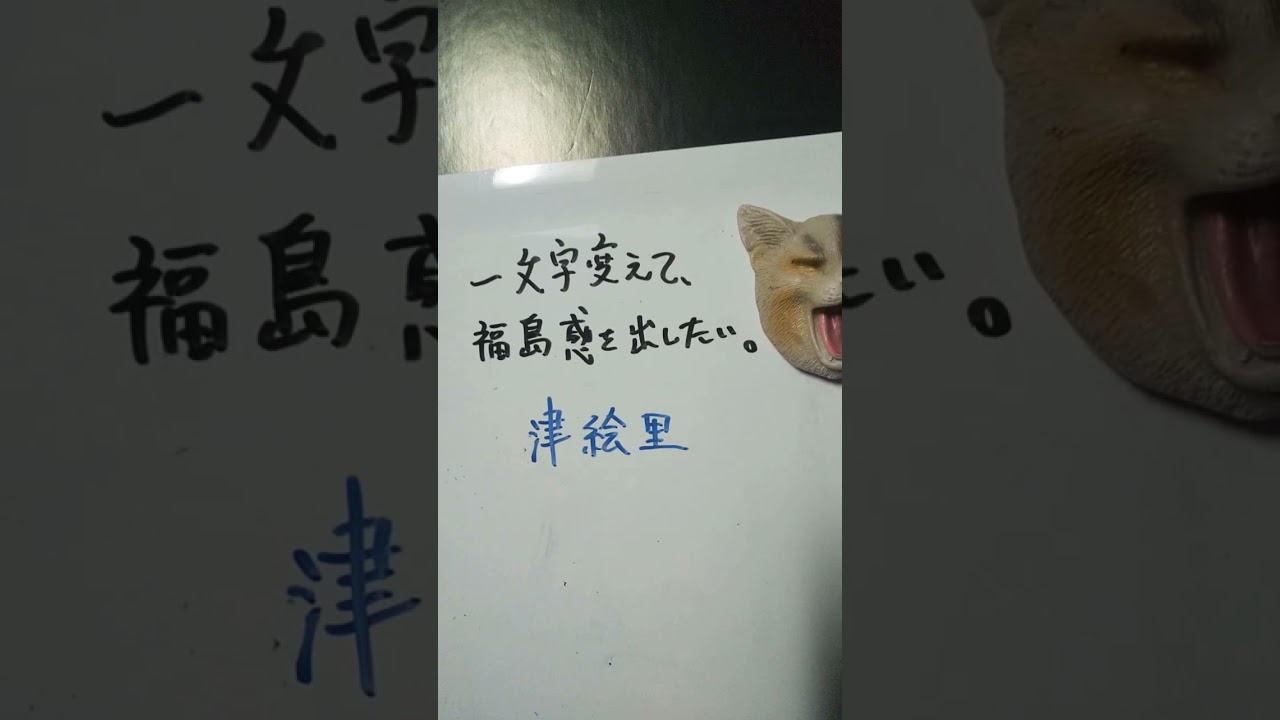 一文字変えて、
福島感を出したい。
津絵里